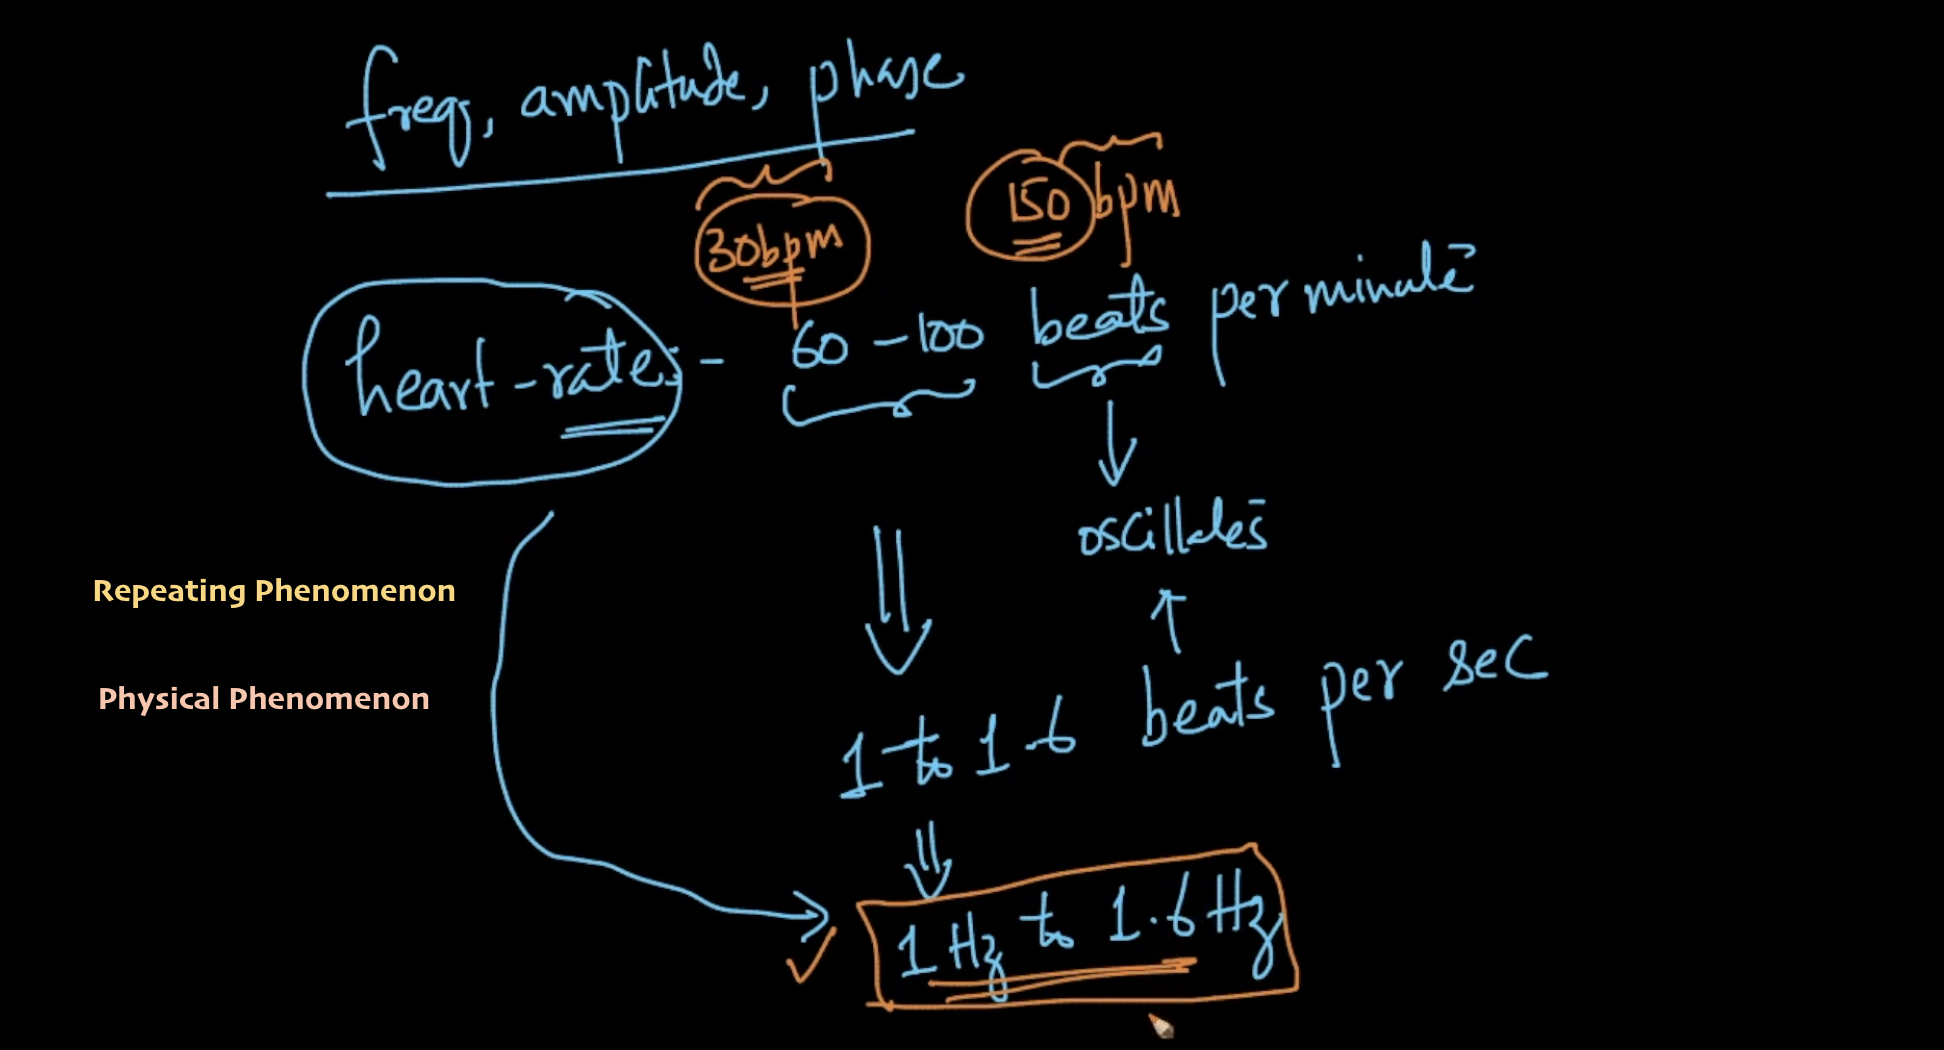 freq, amplitude, phase
30bpm 150 bpm
heart-rate: - 60-100 beats per minute
oscillates
Repeating Phenomenon
Physical Phenomenon
1 to 1.6 beats per sec
1 Hz to 1.6 Hz